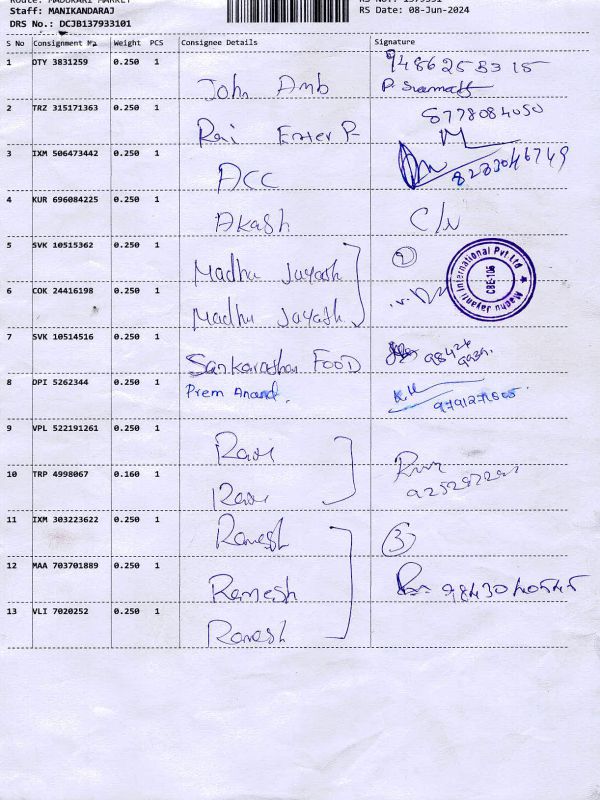 Route: MADUKARI MARKET
Staff: MANIKANDARAJ
RS Date: 08-Jun-2024
DRS No.: DCJB137933101
S No Consignment No Weight PCS Consignee Details Signature
1 OTY 3831259 0.250 1 John Amb 9486253315
2 TRZ 315171363 0.250 1 Rai Enter P 8778084050
3 IXM 506473442 0.250 1 ACC 8233046749
4 KUR 696084225 0.250 1 Akash
5 SVK 10515362 0.250 1 Madhu Jayash 2
6 COK 24416198 0.250 1 Madhu Jayash
Maenu Jayanti International Pvt Ltd
CBE-106
7 SVK 10514516 0.250 1 Sankarathan FOOD 98424
8 DPI 5262344 0.250 1 Prem Anand.
9 VPL 522191261 0.250 1 Ravi
10 TRP 4998067 0.160 1 Ravi
11 IXM 303223622 0.250 1 Ramesh 3
12 MAA 703701889 0.250 1 Ramesh 9843040545
13 VLI 7020252 0.250 1 Ramesh